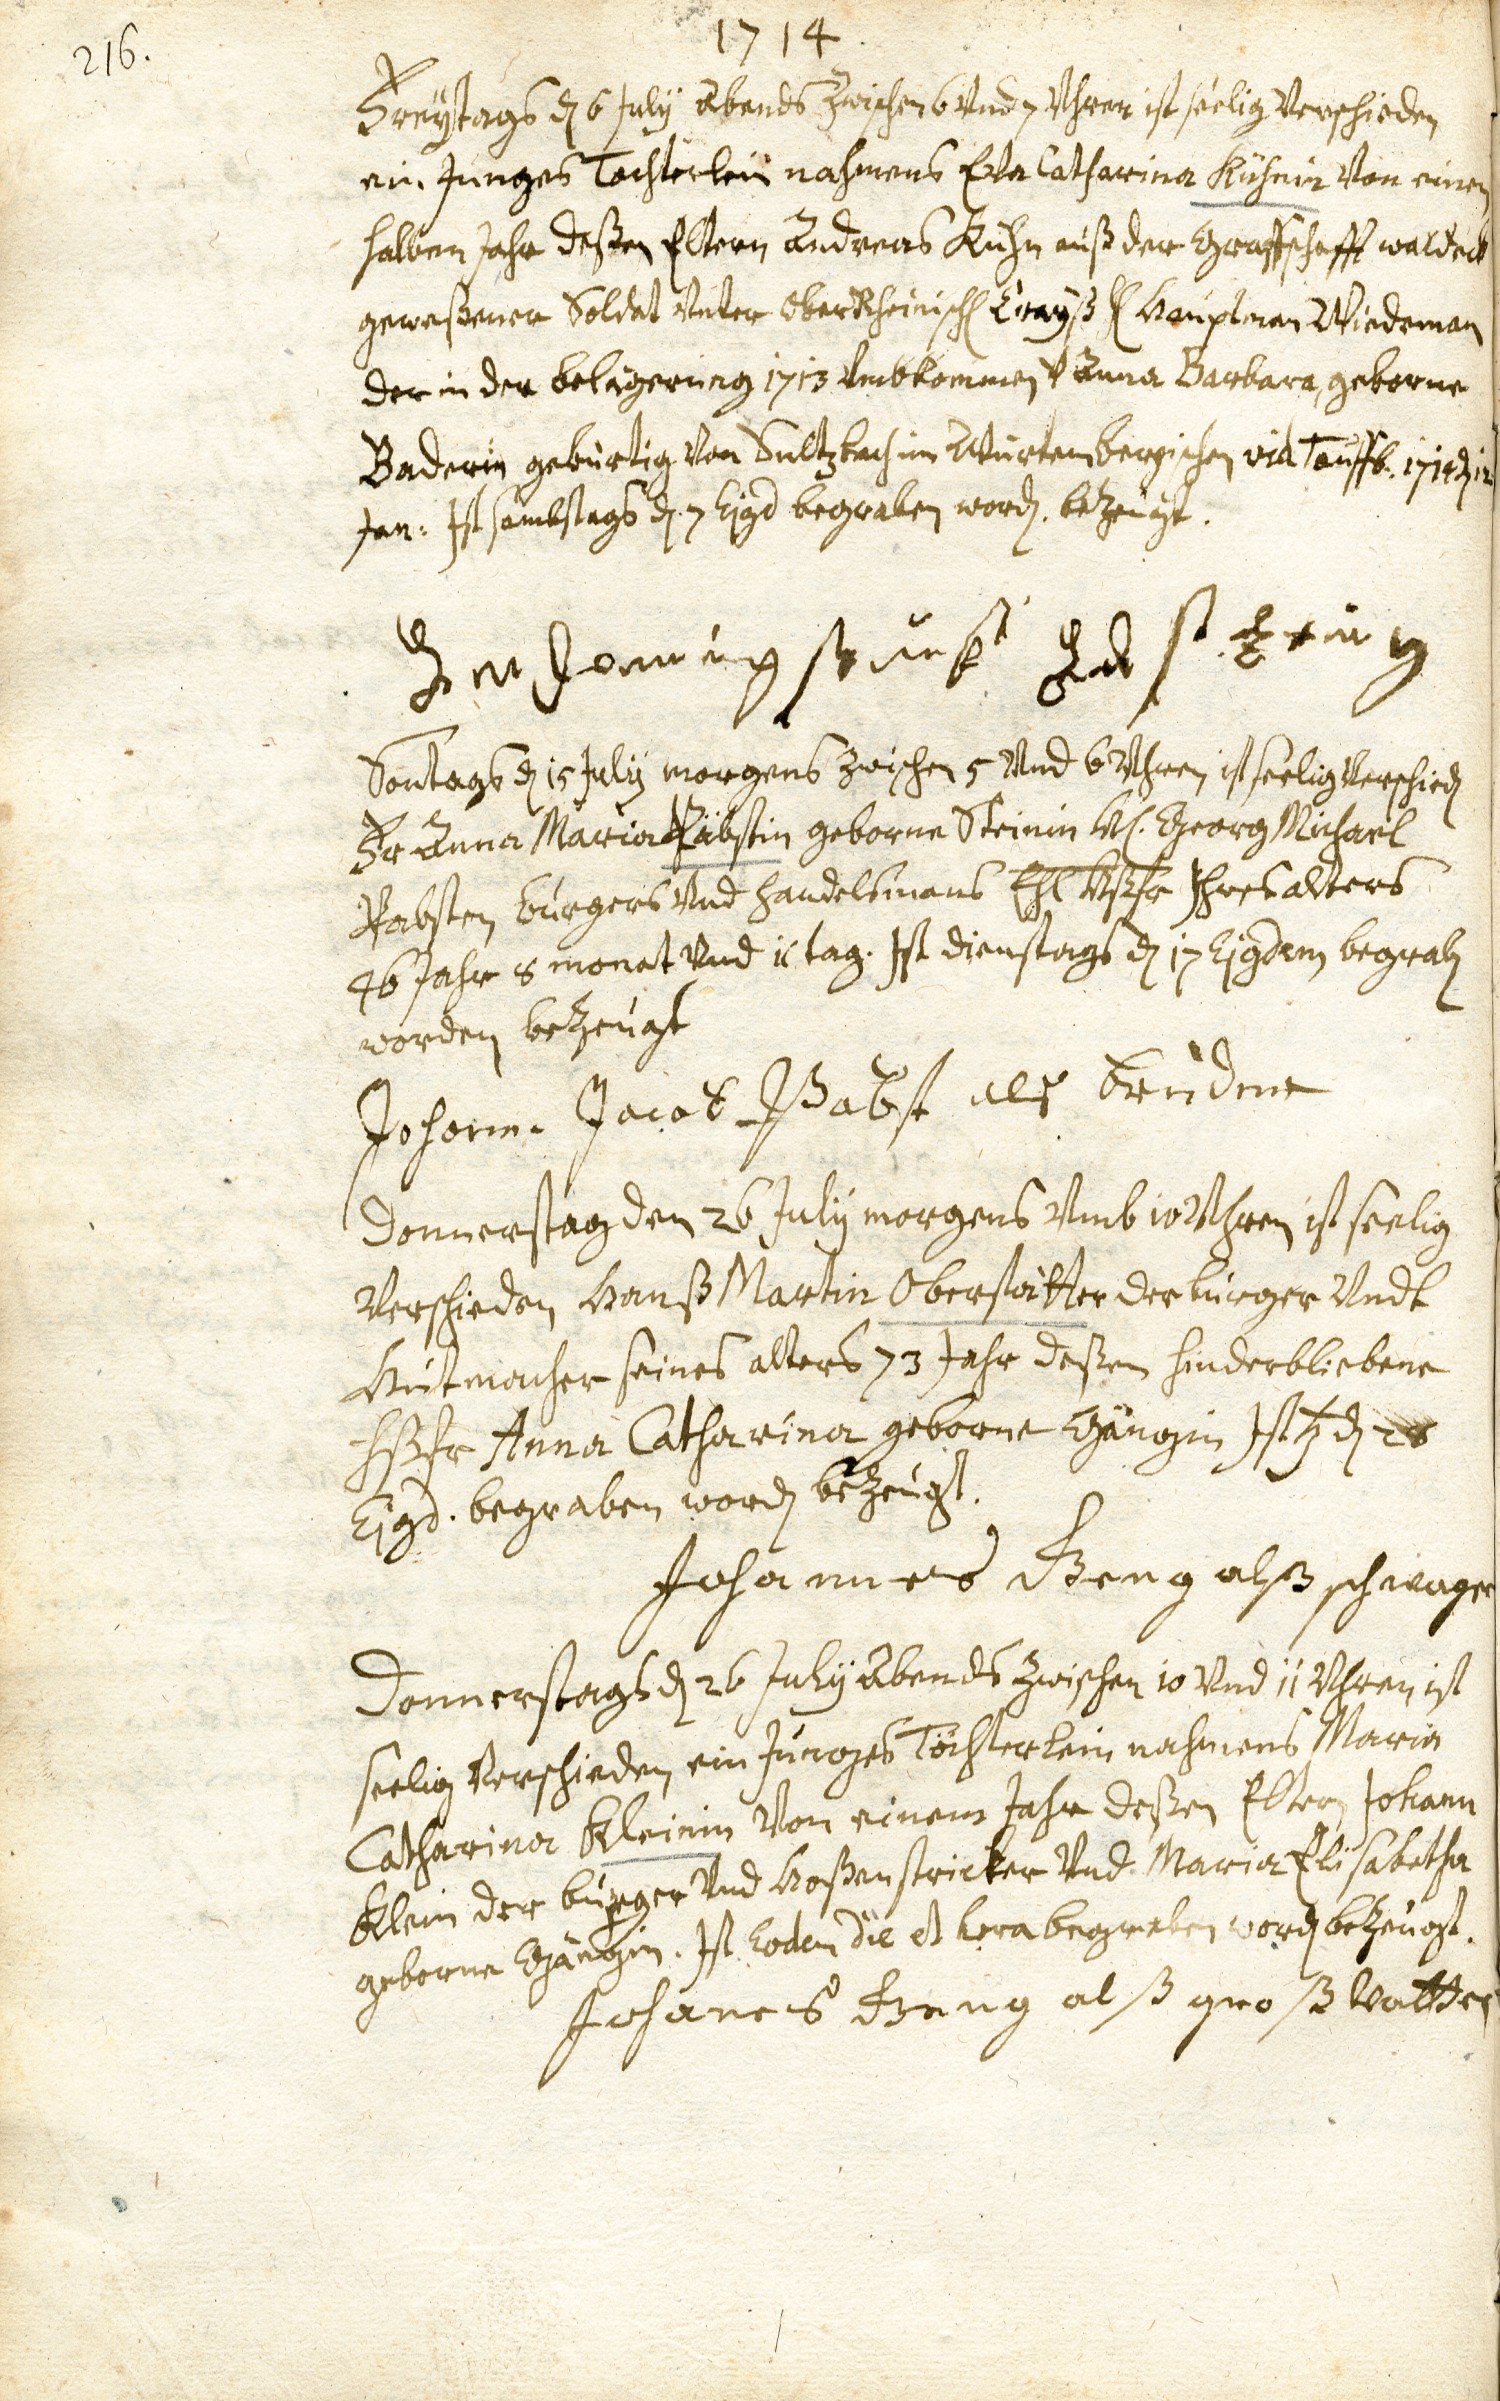 216.
1714
Freÿtags dͤ 6 Julÿ Abends Zwischen 6 Vnd 7 Vhren ist seelig Verschieden
ein Junges Tochterlein nahmens Eva Catharina Kühnin Von einem
halben Jahr deßen Eltern Andreas Kühn auß der Graffschafft waldeck
geweßener Soldat Vnter OberRheinisch Crayß H Hauptman Wiedeman
der in der belägerung 1713 Vmbkommen V Anna Barbara, geborne
Baderin gebürtig Von Sultzbach im Würtembergischen vid Tauffb. 1714 d 12
Jan: Ist sambstags d. 7 Ejgd begraben word. beZeugt.
Sontags d 15 Julÿ morgens Zwischen 5 Vnd 6 Vhren ist seelig Verschied
Fr Anna Maria Päbstin geborne Steinin H. Georg Michael
Pabsten burgers Vnd handelsmans Ehl Hßfr Ihres alters
46 Jahr 8 monat Vnd 11 tag. Ist dienstags d 17 Ejgdem begrab
worden beZeugt
Johann Jacob Pabst als bruder
Donnerstag den 26 Julÿ morgens Vmb 10 Vhren ist seelig
Verschieden Hanß Martin Oberstätter der burger Vndt
Hutmacher seines alters 73 Jahr deßen hinderbliebene
Hßfr Anna Catharina geborne Gängin Ist d 28
Ejgd. begraben word beZeugt.
Johannes Geng alß schwager
Donnerstags d 26 Julÿ Abends Zwischen 10 Vnd 11 Vhren ist
seelig Verschieden ein Junges Töchterlein nahmens Maria
Catharina Kleinin Von einem Jahr deßen Eltern Johann
Klein der burger Vnd Hoßenstricker Vnd Maria Elisabetha
geborne Gängin. Ist Eodem die et hora begraben word beZeugt.
Johanes Geng alß groß Vatter